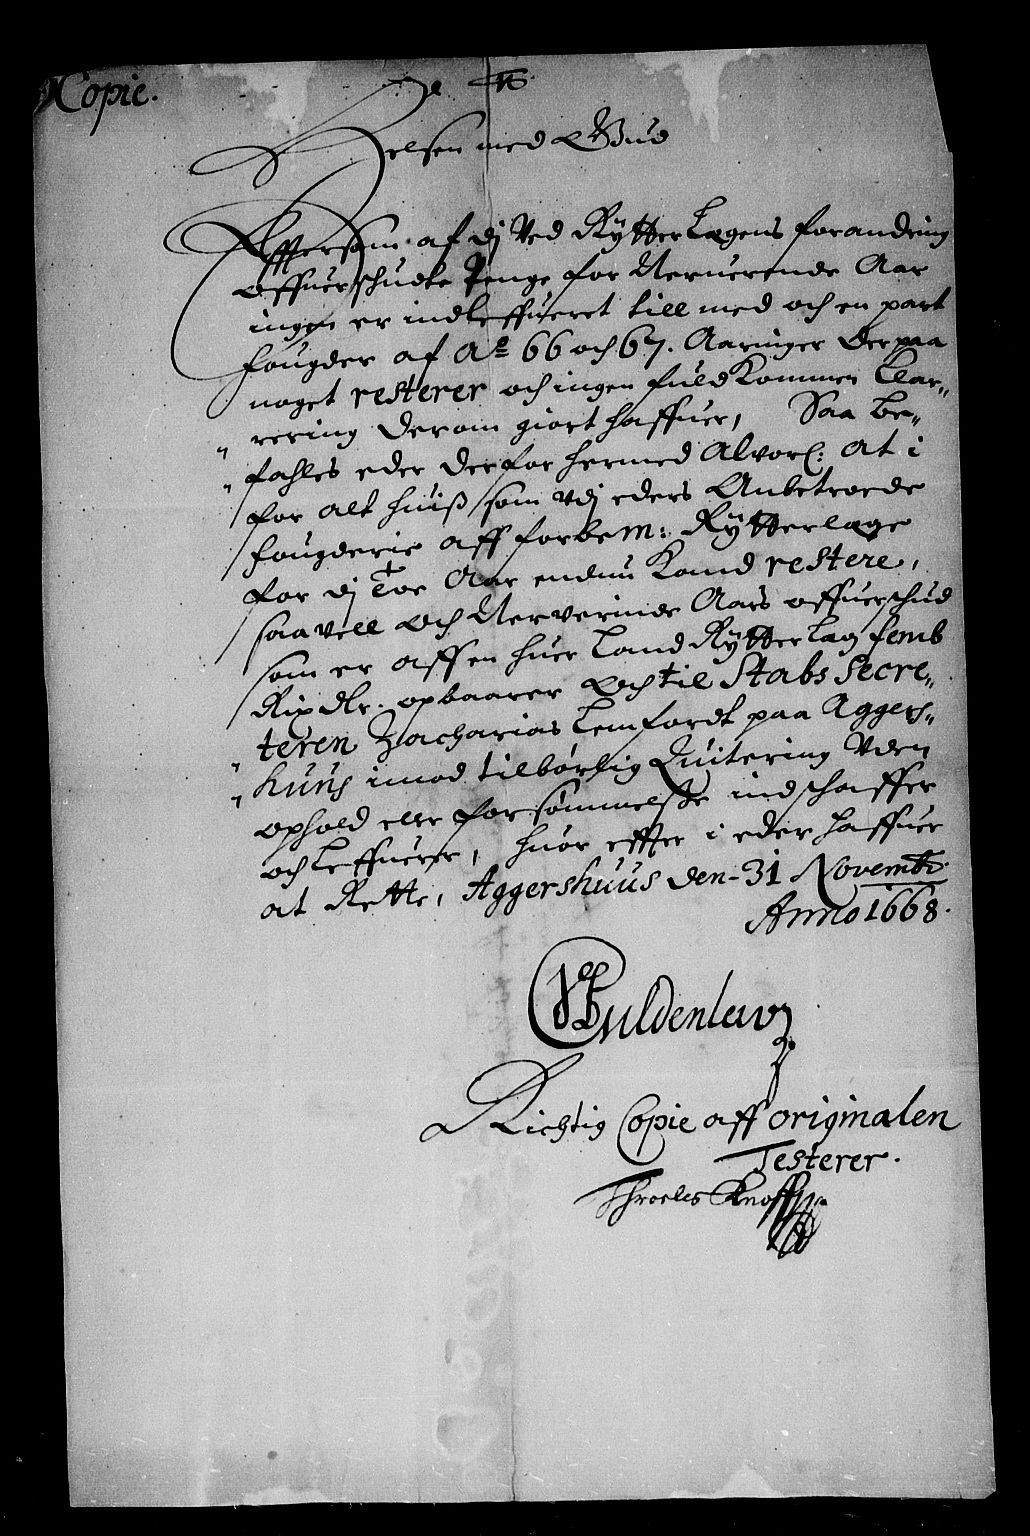 Copie.
Helsen med Gud
Effterson af dj Ved Rytter Lægens forandring
offuerschudts Penge for Neruerende Aar
ingen er indleffueret till med och en part
fougder af Aº 66 och 67. Aaringer der paa
noget resterer och ingen fuldkommen Clar„
„ rering derom giort haffuer, Saa be„
„ fahles eder derfor hermed Alvorl: at i
for alt huiß som vdj eders Anbetroede
fougderie aff forbem: Rytterlage
for dj Toe Aar endnu kand restere,
saavell och Nerverinde Aars offuerschud
som er aff en huer Land Rytter Lag femb
Rix dlr. opbaarer och til Stabs Secre„
„ teren Zacharias Lemfordt paa Aggers„
„ huus imod tilbørlig Quitering Vden
ophold eller forsømmelße indschaffer
och leffuerer, huor effter i eder haffuer
at Rette, Aggershuus den 31 Novemb:
Anno 1668.
Guldenlew
Richtig Copie aff originalen
Testerer.
Throels Knoff